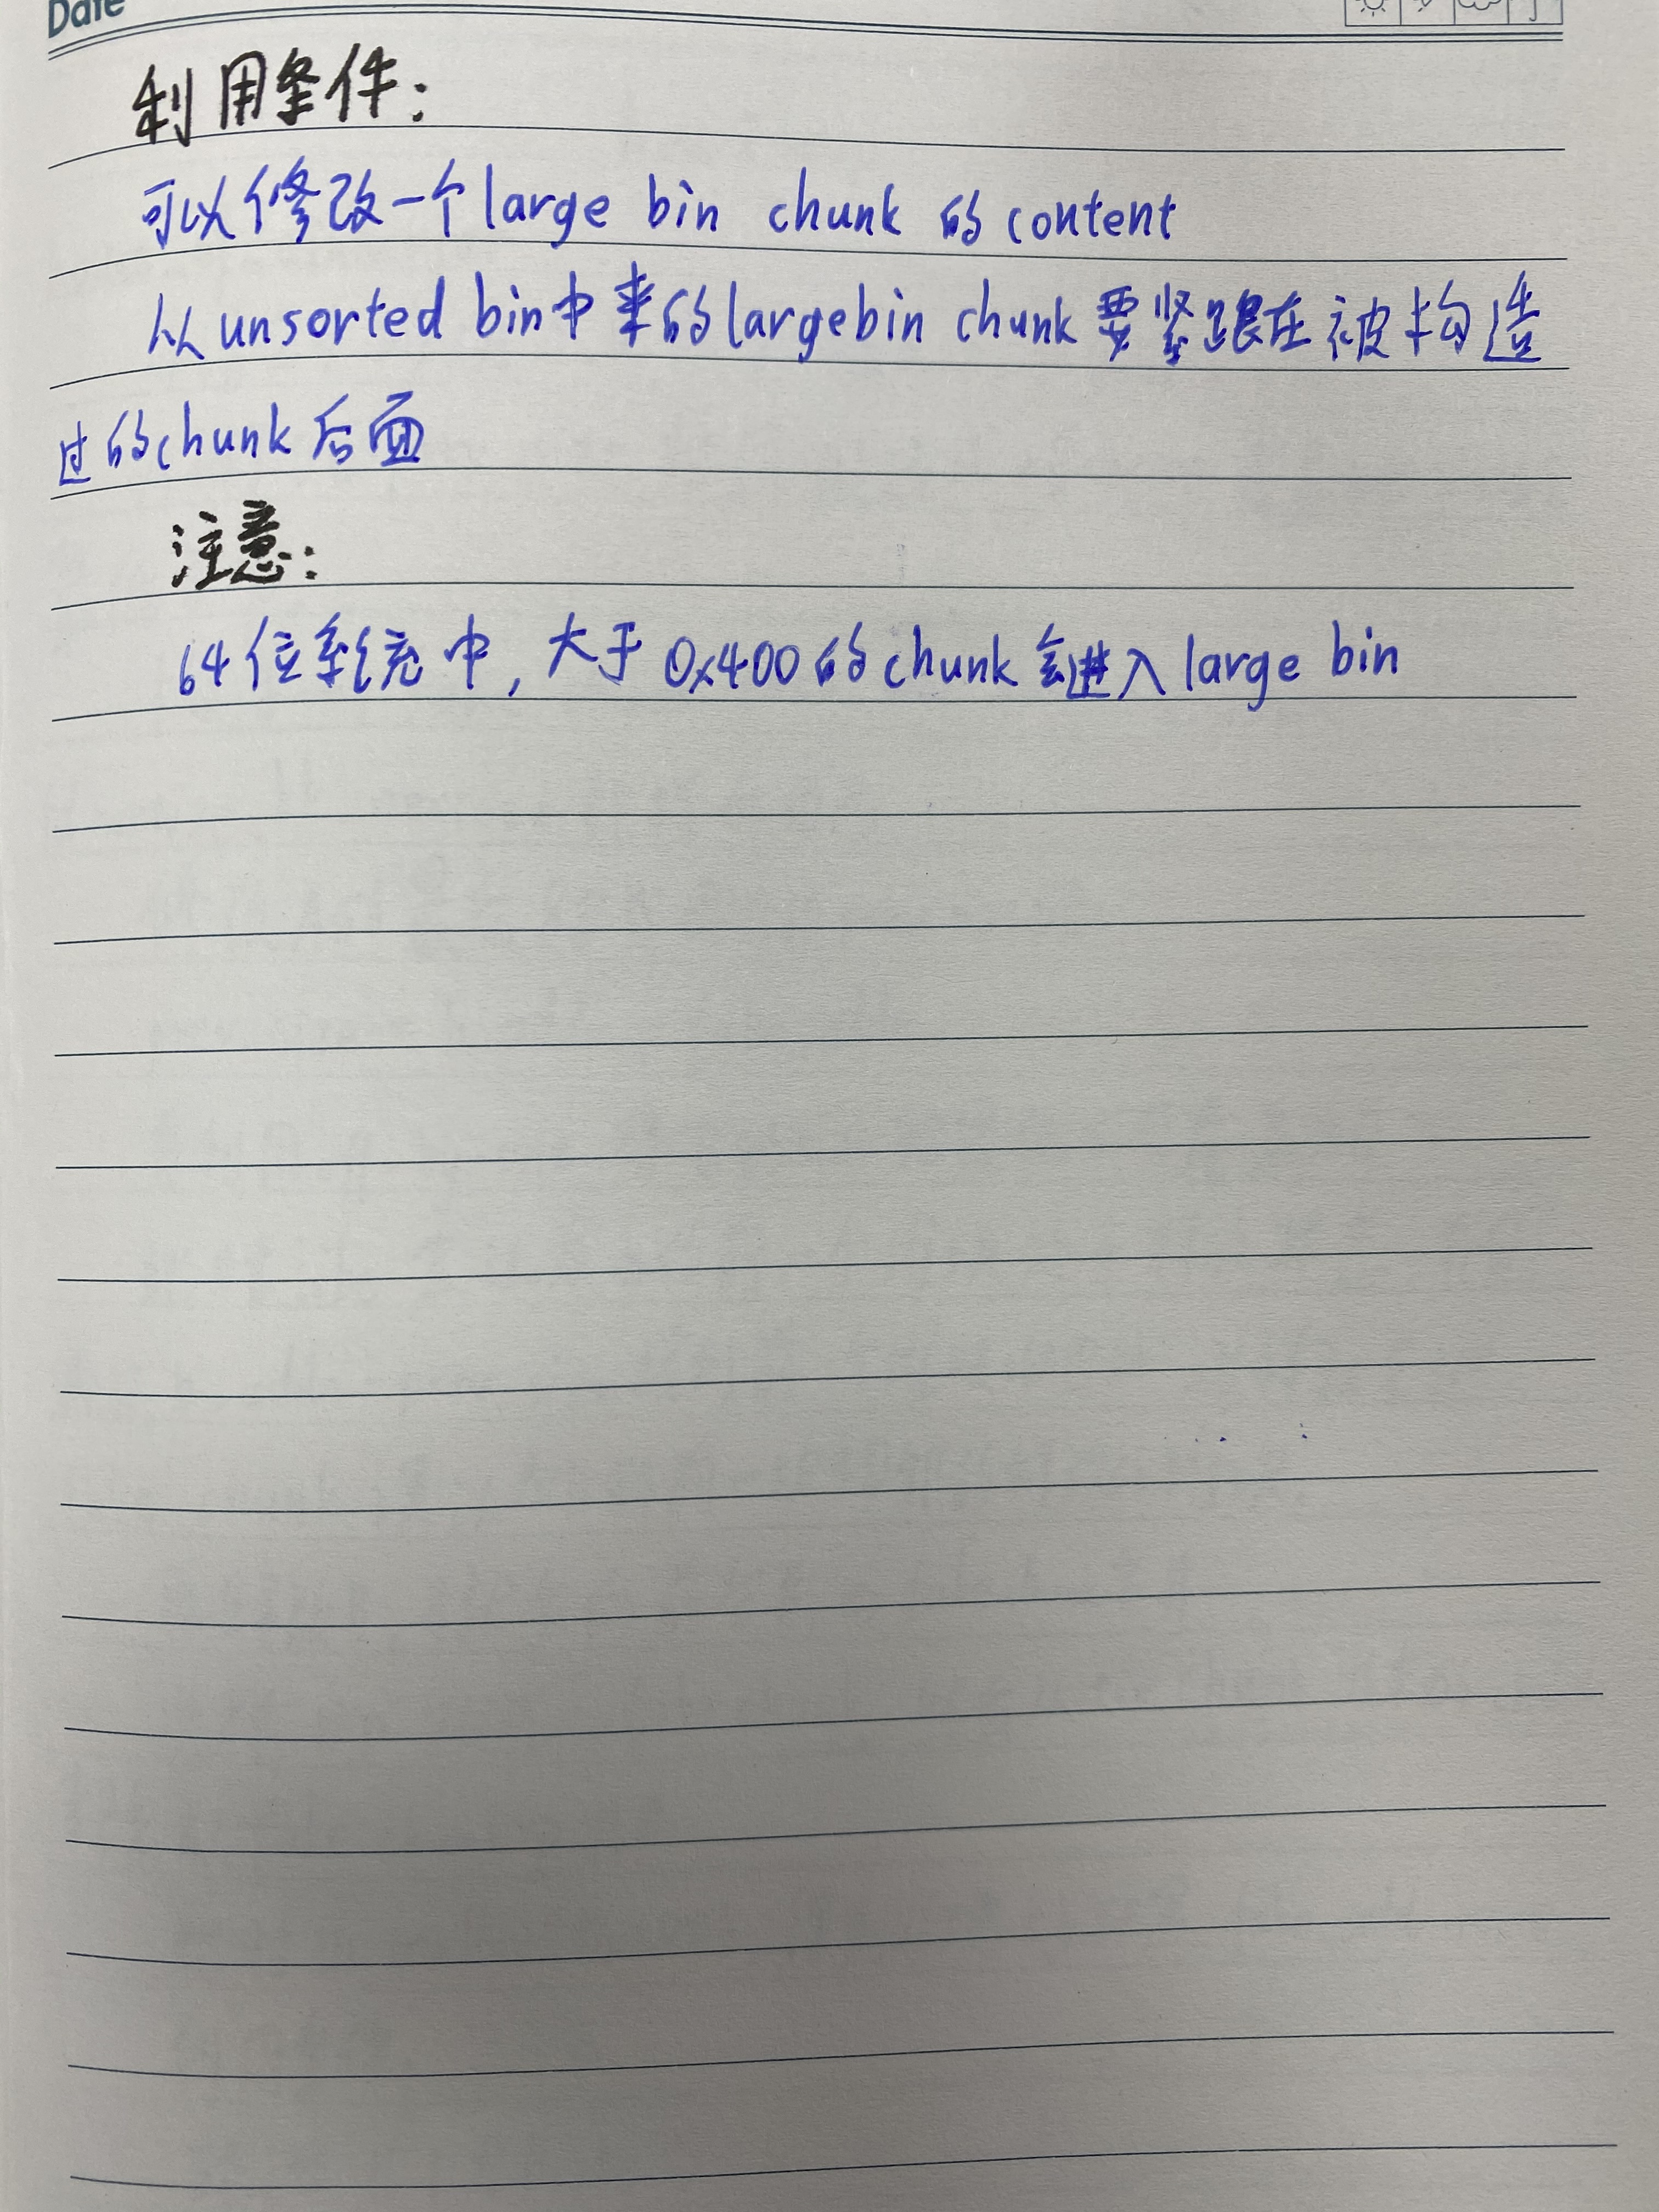 Date
利用条件:
可以修改一个large bin chunk 的content
从unsorted bin中来的largebin chunk要紧跟在被构造
过的chunk后面
注意:
64位系统中,大于0x400的chunk会进入large bin